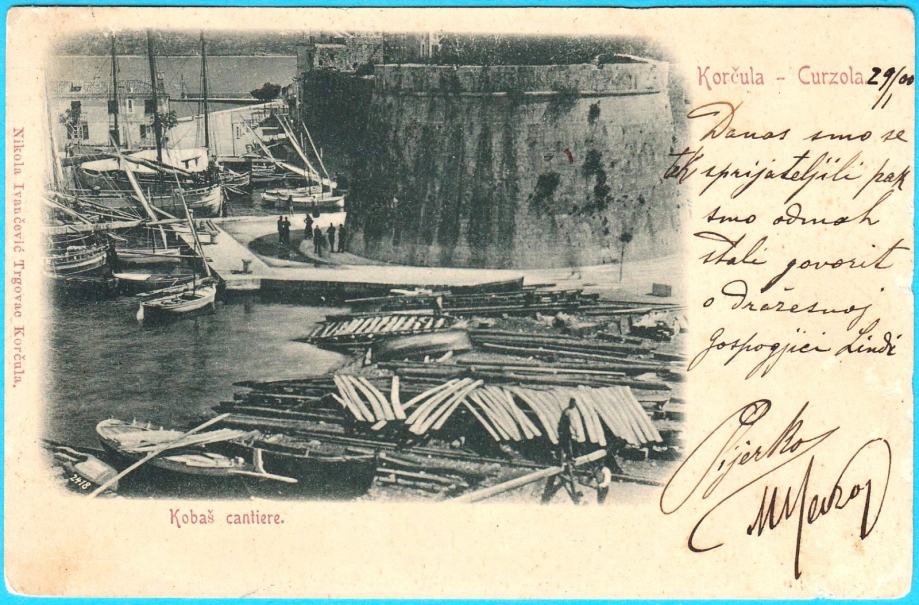 Korčula - Curzola 29/1 00
Danas smo se
tek sprijateljili pak
smo odmah
stali govorit
o dražesnoj
gospogjici Lindi
Pijerko
Nikola Ivančević Trgovac Korčula.
2418
Kobaš cantiere.